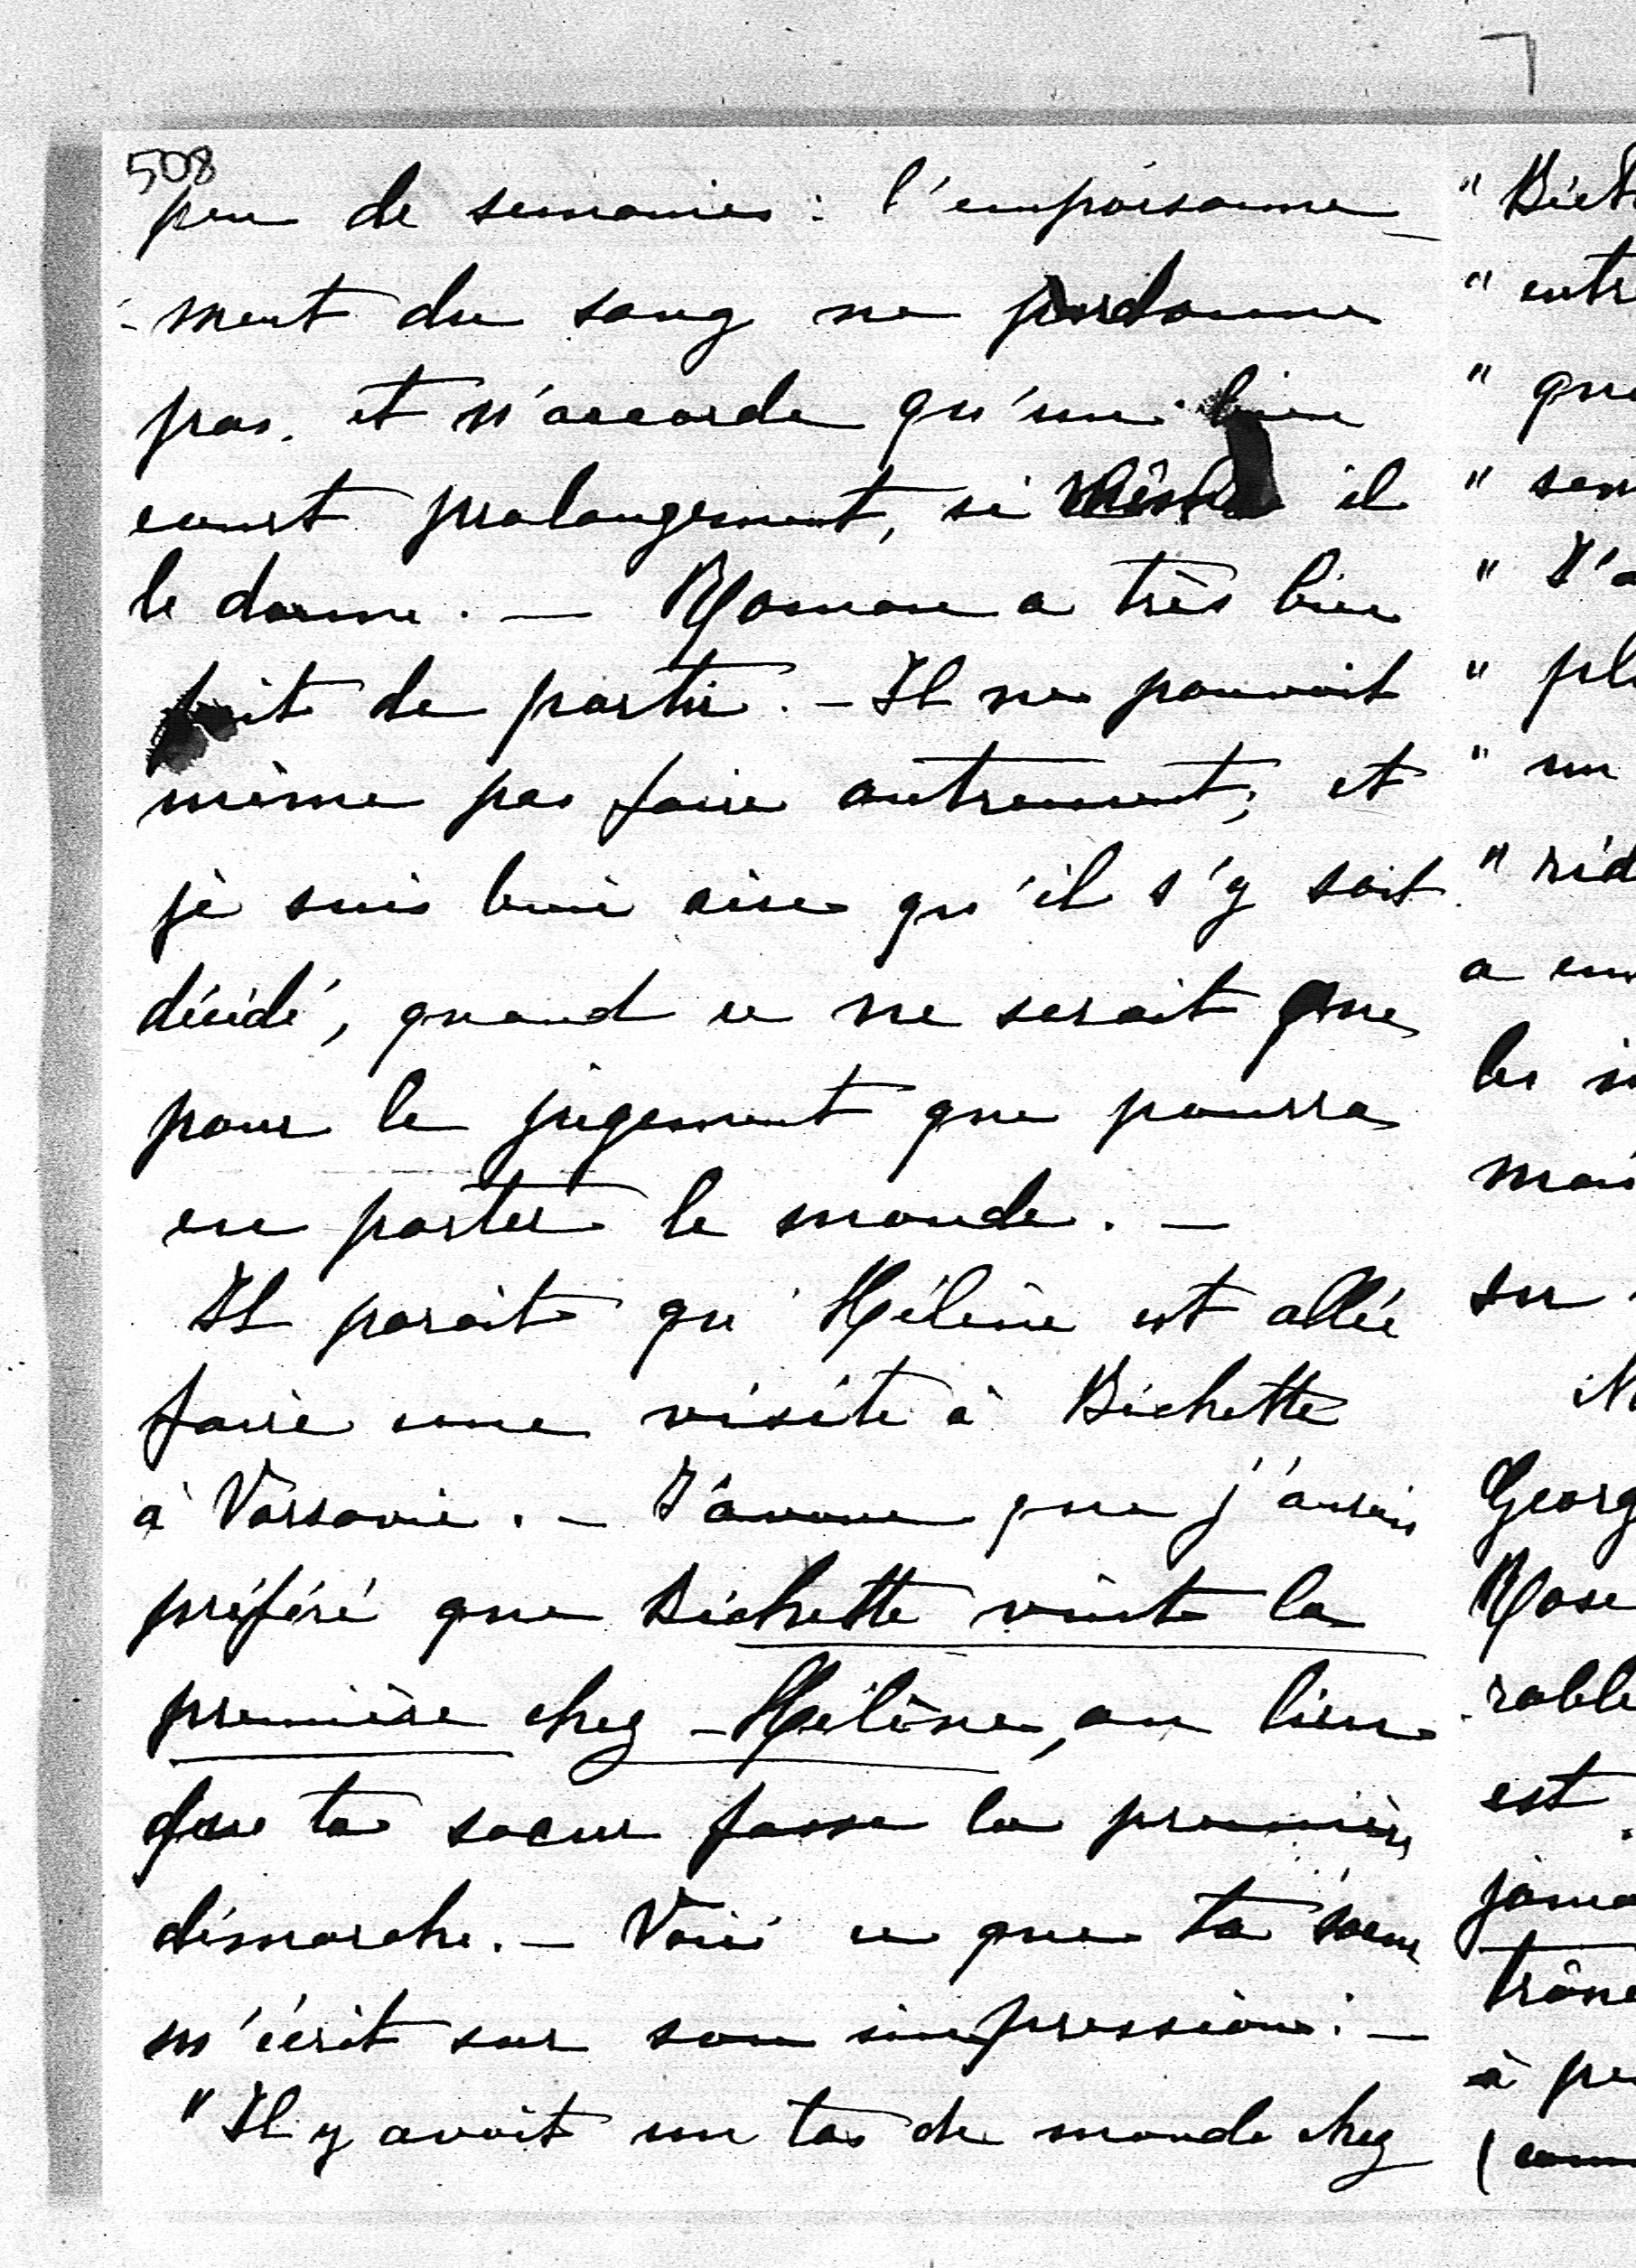 508
peu de semaines : l'empoisonne-
-ment du sang ne pardonne
pas, et n'accorde qu'un bien
court prolongement, si même il
le donne. — Roman a très bien
fait de partir. — Il ne pouvait
même pas faire autrement; et
je suis bien aise qu'il s'y soit
décidé, quand ce ne serait que
pour le jugement que pourra
en porter le monde. —
Il paraît qu'Hélène est allée
faire une visite à Bichette
à Varsovie. — J'avoue que j'aurais
préféré que Bichette vint la
première chez Hélène, au lieu
que ta soeur fasse la première
démarche. — Voici ce que ta soeur
m'écrit sur son impression: —
"Il y avait un tas de monde chez
"Bich
"entr
"que
"sen
"J'a
"pl
"un
"rid
a en
les i
mais
su
Georg
Rose
rable
est
jama
trône
à pe
(com